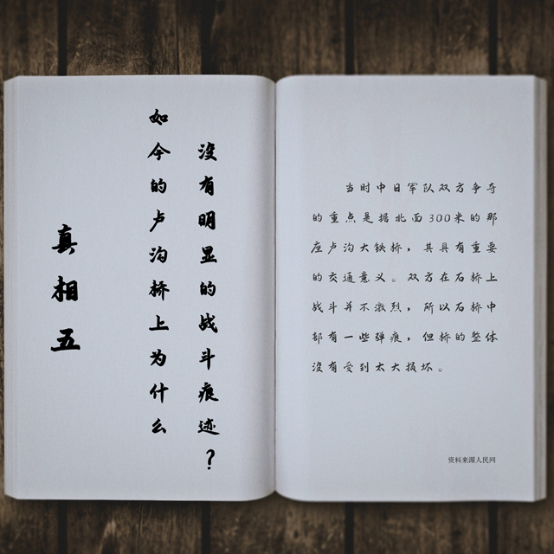 真相五
如今的卢沟桥上为什么
没有明显的战斗痕迹？
当时中日军队双方争夺
的重点是指北面300米的那
座卢沟大铁桥，其具有重要
的交通意义。双方在石桥上
战斗并不激烈，所以石桥中
部有一些弹痕，但桥的整体
没有受到太大损坏。
资料来源人民网